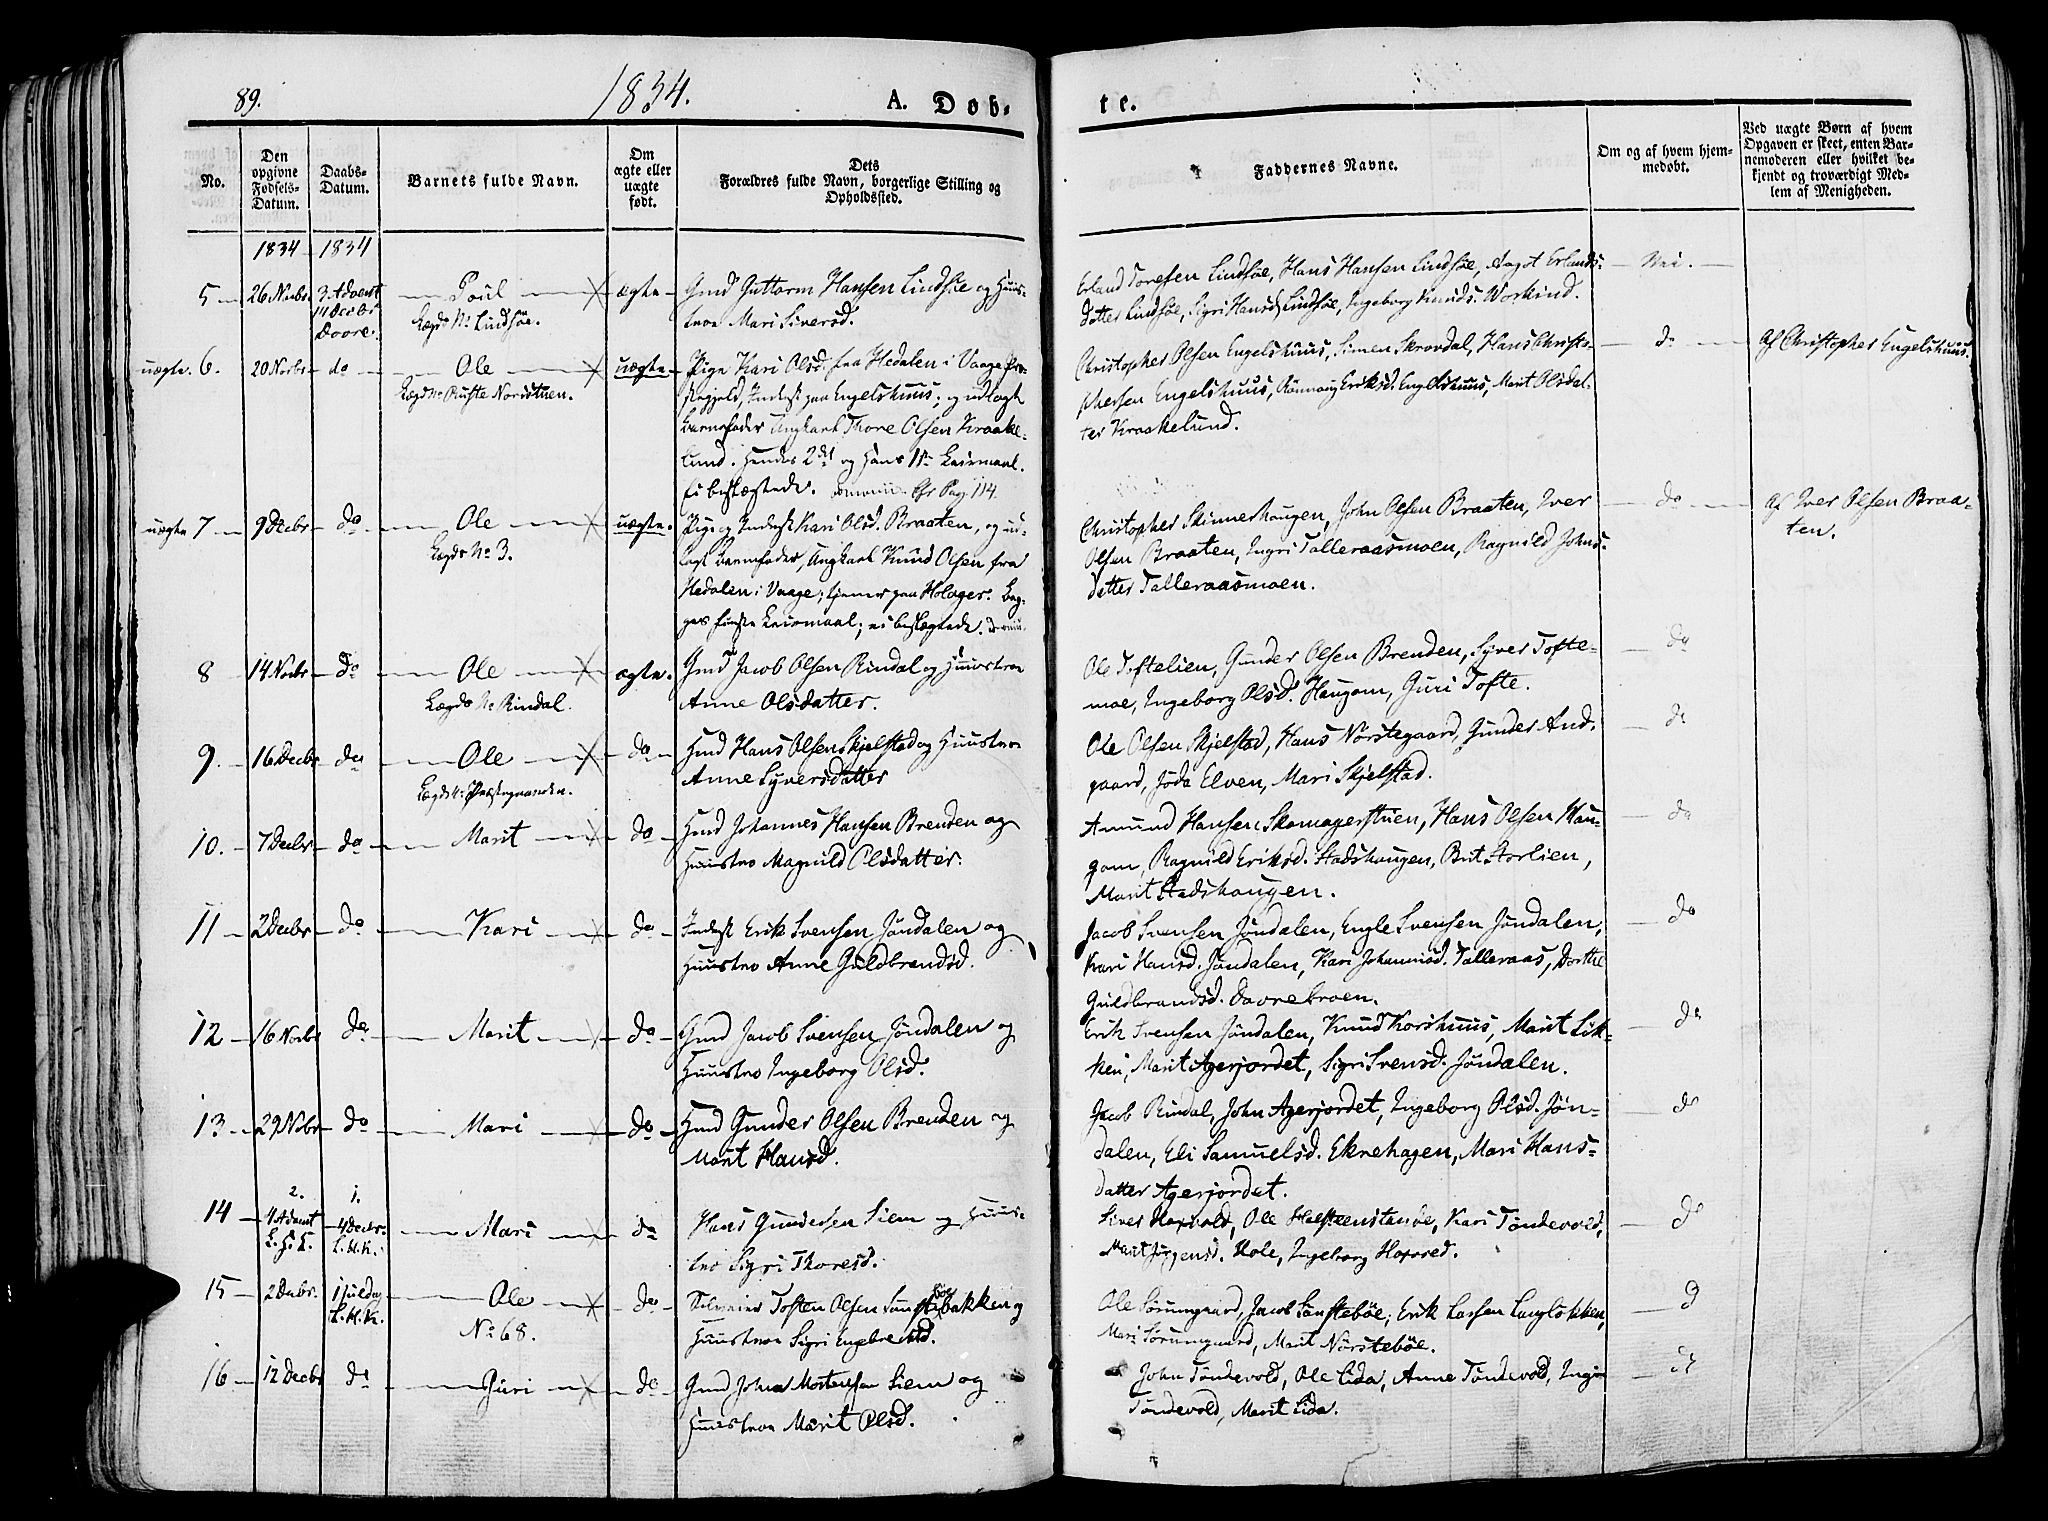 89.
1834.
A. Døb-
te.
No.
Den opgivne Fødsels-Datum.
Daabs-Datum.
Barnets fulde Navn.
Om ægte eller uægte født.
Dets
Forældres fulde Navn, borgerlige Stilling og
Opholdssted.
Faddernes Navne.
Om og af hvem hjem-
medøbt.
Ved uægte Børn af hvem
Opgaven er skeet, enten Bar-
nemoderen eller hvilket be-
kjendt og troværdigt Med-
lem af Menigheden.
1834 1834
5 26 Novbr 3 Advent
14 Decbr
Dovre.
Poul
Lægds No Lindsøe.
ægte
Gmd Guttorm Hansen Lindsøe og Huus-
troe Mari Siversd.
Erland Toresen Lindsøe, Hans Hansen Lindsøe, Aagot Erlands-
datter Lindsøe, Sigri Hansd. Lindsøe, Ingeborg Knuds. Workind.
Nei.
uægte. 6. 20 Novbr do
Ole
Lægds No Ruste Nordstuen.
uægte
Pige Kari Olsd. fra Hedalen i Vaage Præ-
stegjeld, Inderst paa Engelshuus; og udlagt
Barnefader Ungkarl Thore Olsen Kraake-
lund. Hendes 2det og Hans 1ste Leiermaal.
Ei beslægtede. Cfr Pag. 114.
Christopher Olsen Engelshuus, Simen Skrovdal, Hans Christo-
phersen Engelshuus, Rønnaug Eriksd. Engelshuus, Marit Olsdat-
ter Kraakelund.
do
Af Christopher Engelshuus.
uægte 7 9 Decbr do
Ole
Lægds No 3.
uægte.
Pige og Inderst Kari Olsd. Braaten, og ud-
lagt Barnefader, Ungkarl Knud Olsen fra
Hedalen i Vaage; tjener paa Holager. Beg-
ges første Leiermaal; ei beslægtede.
Christopher Skinnerhaugen, John Olsen Braaten, Iver
Olsen Braaten, Ingri Talleraasmoen, Ragnild Johns-
datter Talleraasmoen.
do
Af Iver Olsen Braa-
ten.
8 14 Novbr do
Ole
Lægds No Rindal.
ægte.
Gmd Jacob Olsen Rindal og Huustroe
Anne Olsdatter.
Ole Toftelien, Gunder Olsen Brenden, Syver Tofte-
moe, Ingeborg Olsd. Haugom, Guri Tofte.
do
9. 16 Decbr do
Ole
Lægds No Præstegaarden.
do
Hmd Hans Olsen Skjelstad og Huustroe
Anne Syversdatter
Ole Olsen Skjelstad, Hans Nørstegaard, Gunder And-
gaard, Joda Elven, Mari Skjelstad.
do
10. 7 Decbr do
Marit
do
Hmd Johannes Hansen Brenden og
Huustro Magnild Olsdatter.
Amund Hansen Skomagerstuen, Hans Olsen Hau-
gom, Ragnild Eriksd. Stadshaugen, Brit Storlien,
Marit Stadshaugen.
do
11 2 Decbr do
Kari
do
Inderst Erik Svensen Jøndalen og
Huustro Anne Guldbrandsd.
Jacob Svensen Jøndalen, Engle Svensen Jøndalen,
Kari Hansd. Jøndalen, Kari Johannisd. Talleraas, Dorthe
Guldbrandsd. Davrebroen.
do
12 16 Novbr do
Marit
do
Gmd Jacob Svensen Jøndalen og
Huustro Ingeborg Olsd.
Erik Svensen Jøndalen, Knud Korshuus, Marit Løk-
ken, Marit Agerjordet, Sigri Svensd. Jøndalen.
do
13 29 Nvbr do
Mari
do
Hmd Gunder Olsen Brenden og
Marit Hansd.
Jacob Rindal, John Agerjordet, Ingeborg Olsd. Jøn-
dalen, Eli Samuelsd. Ekrehagen, Mari Hans-
datter Agerjordet.
do
14 2. 1.
4 Advent 4 Decbr
L. H. K. L. H. K.
Mari
do
Hans Gundersen Siem og Huus-
tro Sigri Thoresd.
Siver Horvold, Ole Helsteenstande, Kari Tøndevold,
Marit Jørgensd. Hole, Ingeborg Horved.
do
15 2 Decbr. 1 Juledag
L. H. K.
Ole
No 68.
do
Toften Olsen Sønstebøebakken og
Huustroe Sigri Engebretsd.
Ole Sørumgaard, Jacob Sønstebøe; Erik Larsen Langløkken,
Mari Sørumgaard, Marit Nørstebøe.
d
16 12 Decbr do
Guri
do
Gmd John Mortensen Siem og
Huustroe Marit Olsd.
John Tøndevold, Ole Lida, Anne Tøndevold, Ingri
Tøndevold, Marit Lida.
do